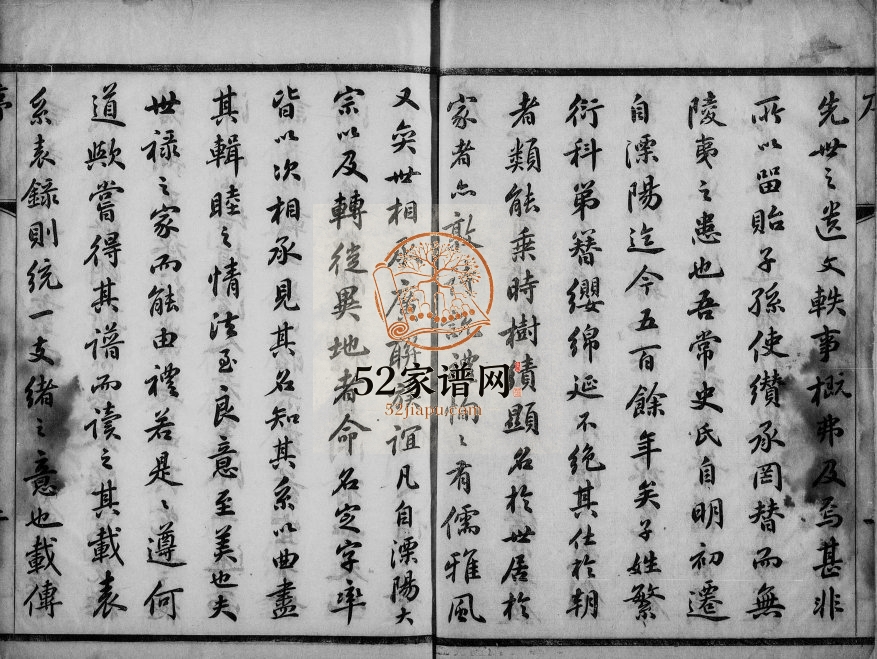 先世之遺文軼事概弗及焉甚非
所以留貽子孫使纘承罔替而無
陵夷之患也吾常史氏自明初遷
自溧陽迄今五百餘年矣子姓繁
衍科第簪纓綿延不絕其仕於朝
者類能乘時樹績顯名於世居於
家者亦敦詩說禮彌彌有儒雅風
又奕世相承廣聯族誼凡自溧陽大
宗以及轉徙異地者命名定字率
皆以次相承見其名知其系以曲盡
其輯睦之情法至良意至美也夫
世祿之家而能由禮若是是遵何
道歟嘗得其譜而讀之其載表
系表錄則統一支緒之意也載傳
52家谱网
52jiapu.com